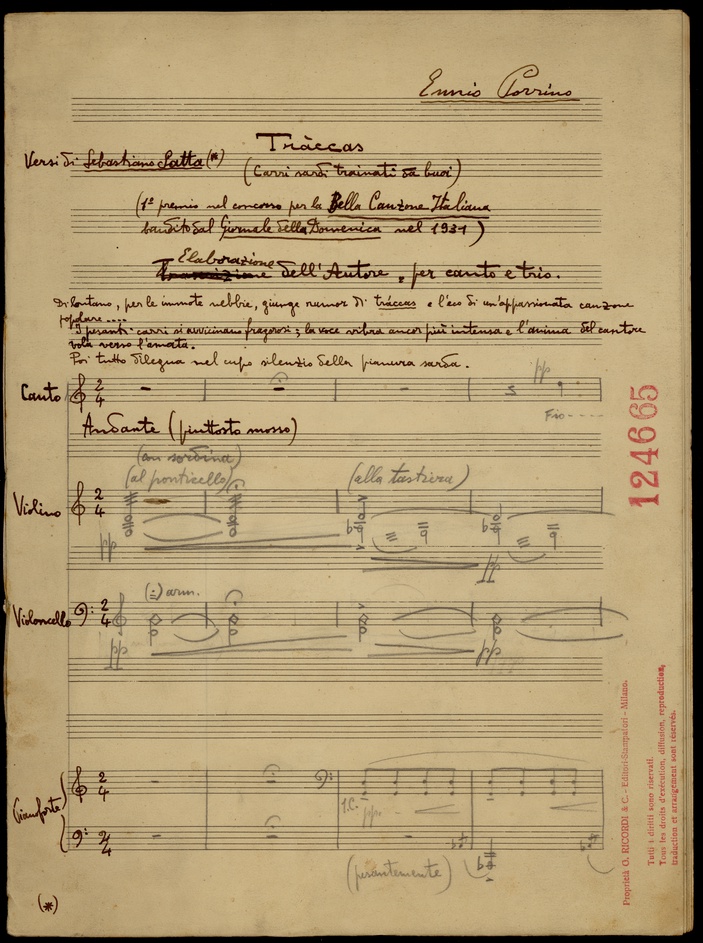 Ennio Porrino
Tràccas
Versi di Sebastiano Satta (*)
(Carri sardi trainati da buoi)
(1º premio nel concorso per la Bella Canzone Italiana
bandito dal Giornale della Domenica nel 1931)
Elaborazione
dell'Autore, per canto e trio.
Di lontano, per le immote nebbie, giunge rumor di tràccas e l'eco di un'appassionata canzone
popolare....
I pesanti carri si avvicinano fragorosi; la voce vibra ancor più intensa e l'anima del cantore
vola verso l'amata.
Poi tutto dilegua nel cupo silenzio della pianura sarda.
Canto 2 4 pp
Fio----
Andante (piuttosto mosso)
(con sordina)
(al ponticello) (alla tastiera)
Violino 2 4
pp pp
arm.
Violoncello 2 4
pp pp
Pianoforte 2 4
1.C. pp
2 4
(pesantemente)
(*)
124665
Proprietà G. RICORDI & C. - Editori-Stampatori - Milano.
Tutti i diritti sono riservati.
Tous les droits d'exécution, diffusion, reproduction,
traduction et arrangement sont réservés.